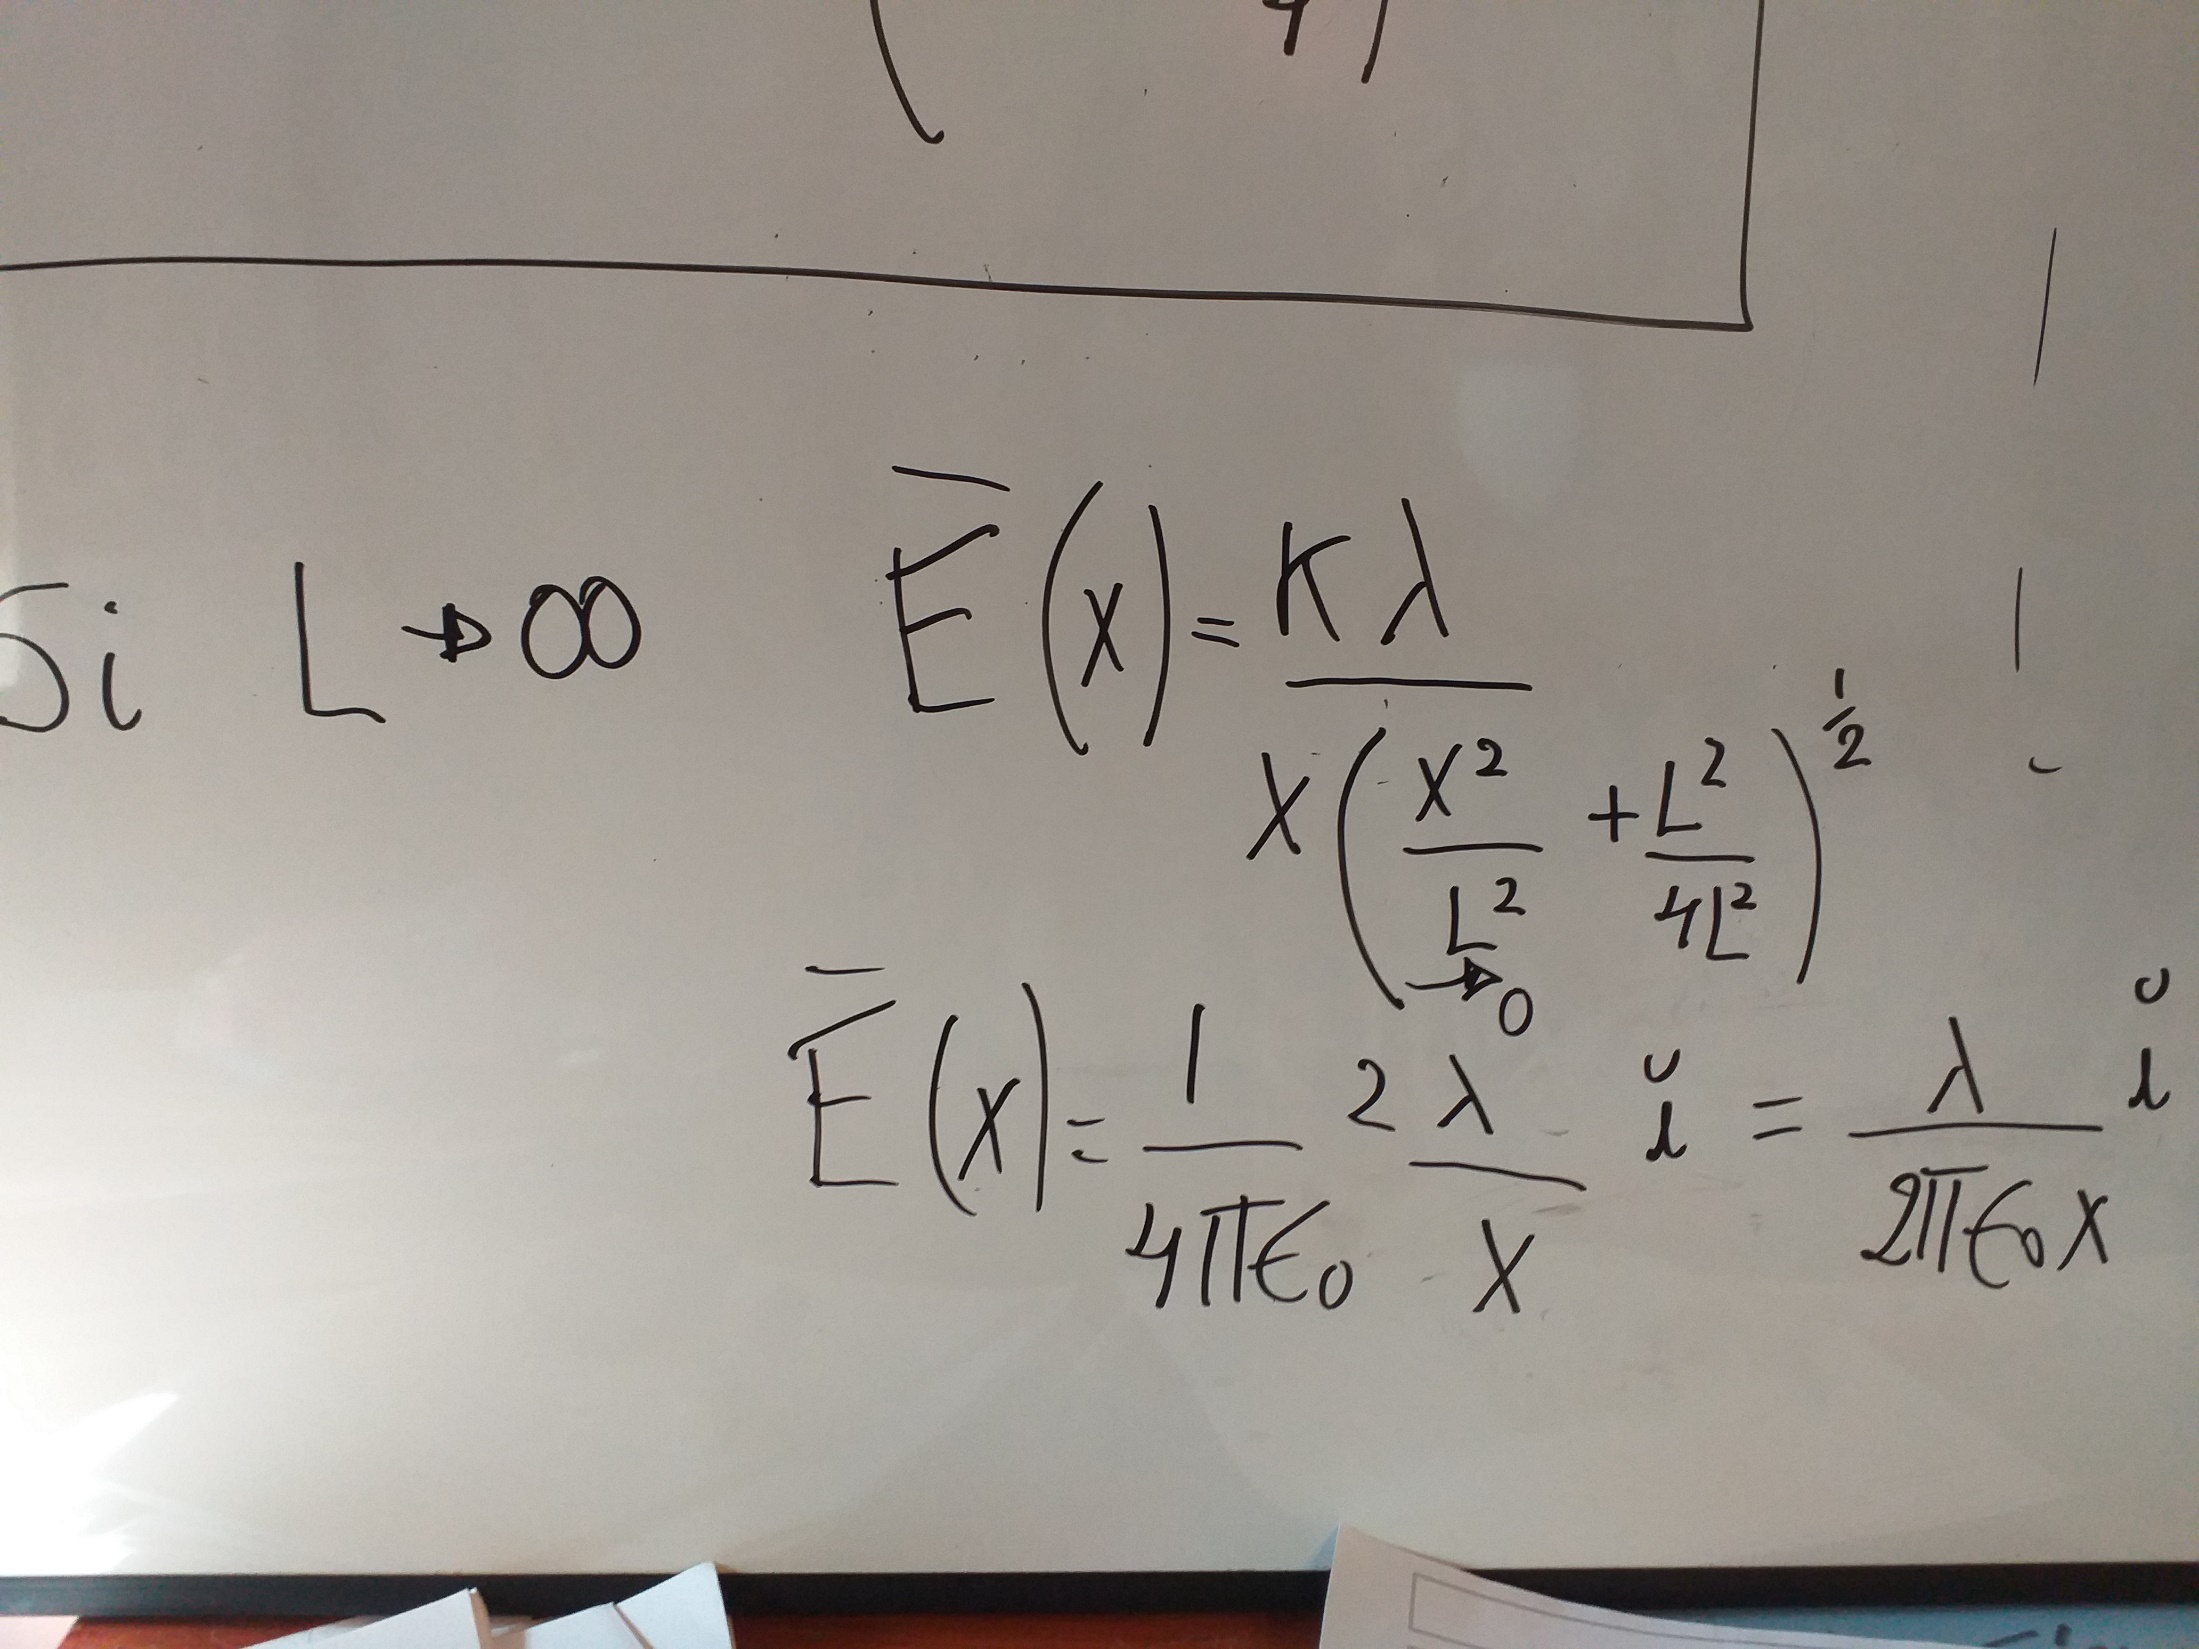 4
Si L → ∞ E̅(x) = Kλ / x(x²/L² + L²/4L²)^½
→0
E̅(x) = 1/4π€₀ 2λ/x ĭ = λ/2π€₀x ĭ